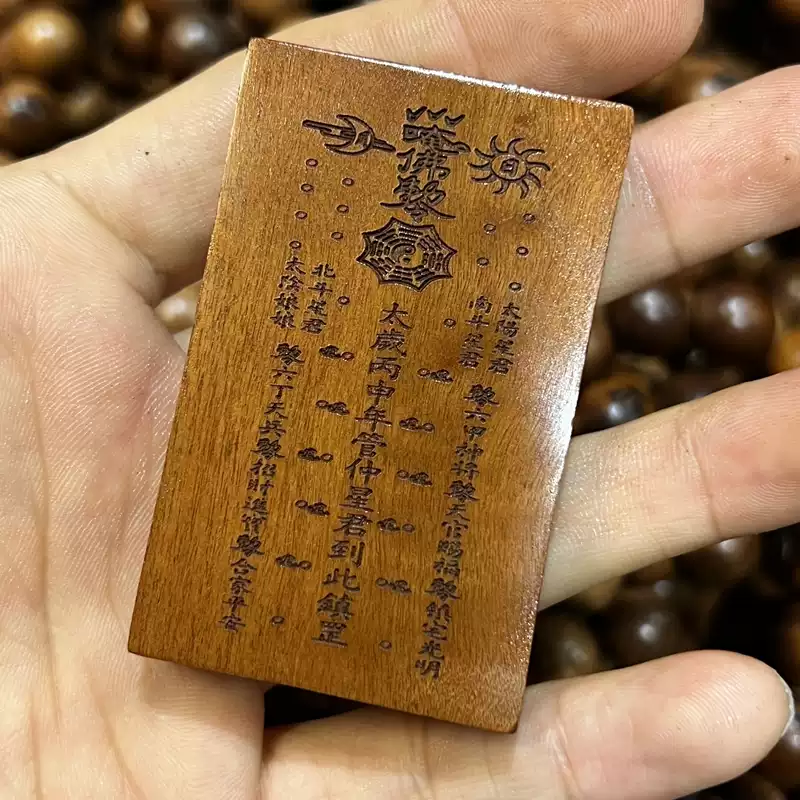 佛
日
太陽星君
南斗星君
六甲神將 天官賜福 鎮宅光明
太歲丙申年管仲星君到此鎮罡
北斗星君
太陰娘娘
六丁天兵 招財進寶 合家平安